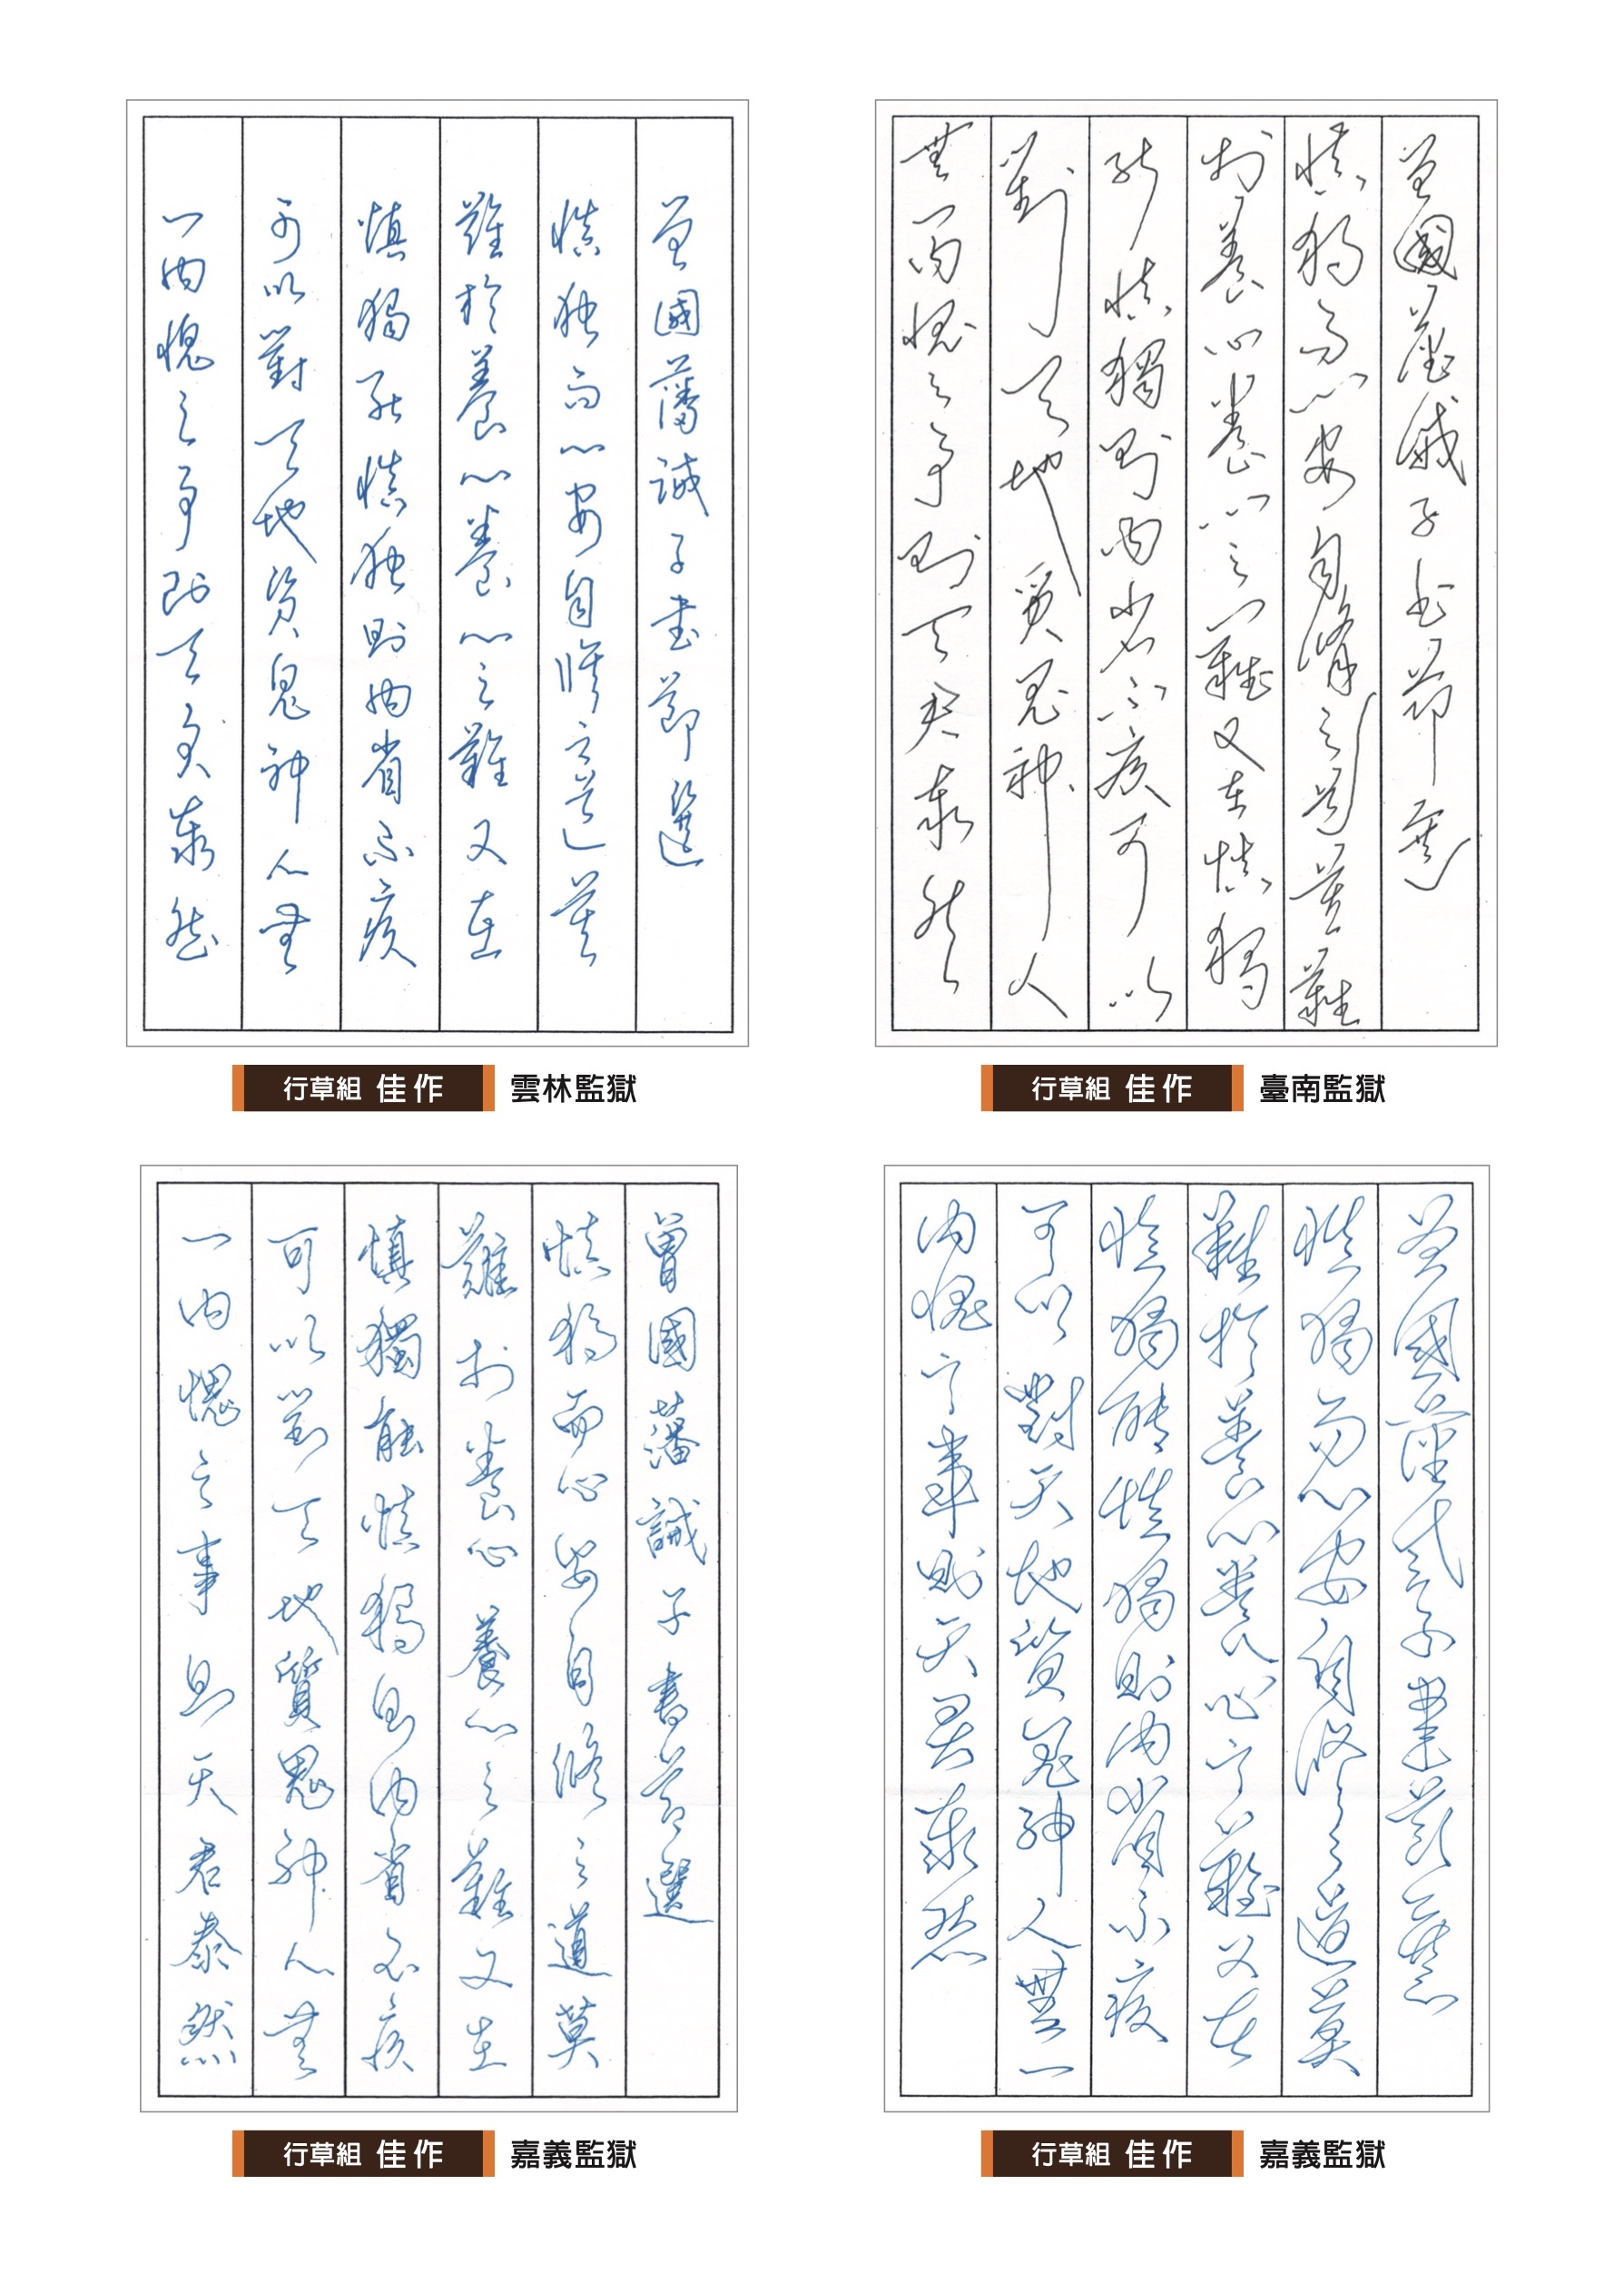 曾國藩誡子書節選
慎独而心安自脩之道莫
難於養心養心之難又在
慎獨能慎独則內省不疚
可以對天地質鬼神人無
一內愧之事則天君泰然
行草組 佳作 雲林監獄
曾國藩誡子書節選
慎獨而心安自脩之道莫難
於養心養心之難又在慎獨
能慎獨則內省不疚可以
對天地質鬼神人
無一內愧之事則天君泰然
行草組 佳作 臺南監獄
曾國藩誡子書節選
慎獨而心安自脩之道莫
難於養心養心之難又在
慎獨能慎獨則內省不疚
可以對天地質鬼神人無
一內愧之事則天君泰然
行草組 佳作 嘉義監獄
曾國藩誡子書節選
慎獨而心安自修之道莫
難於養心養心之難又在
慎獨能慎獨則內省不疚
可以對天地質鬼神人無一
內愧之事則天君泰然
行草組 佳作 嘉義監獄